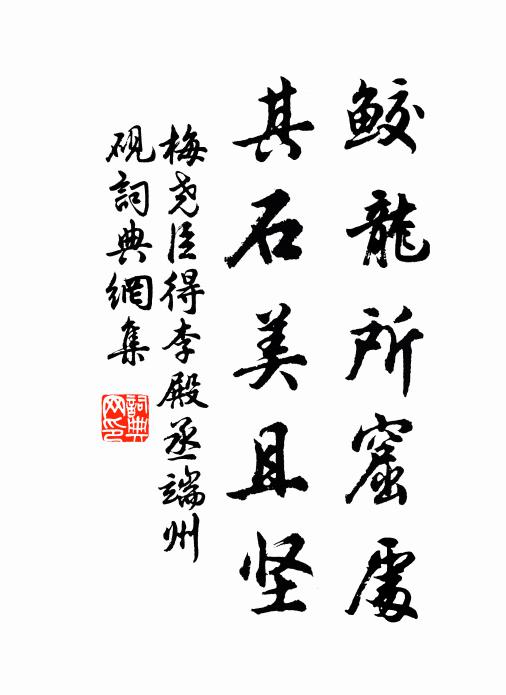 鮫龍所窟處
其石美且坚
梅尧臣得李殿丞端州
砚詞典網集
詞典網印